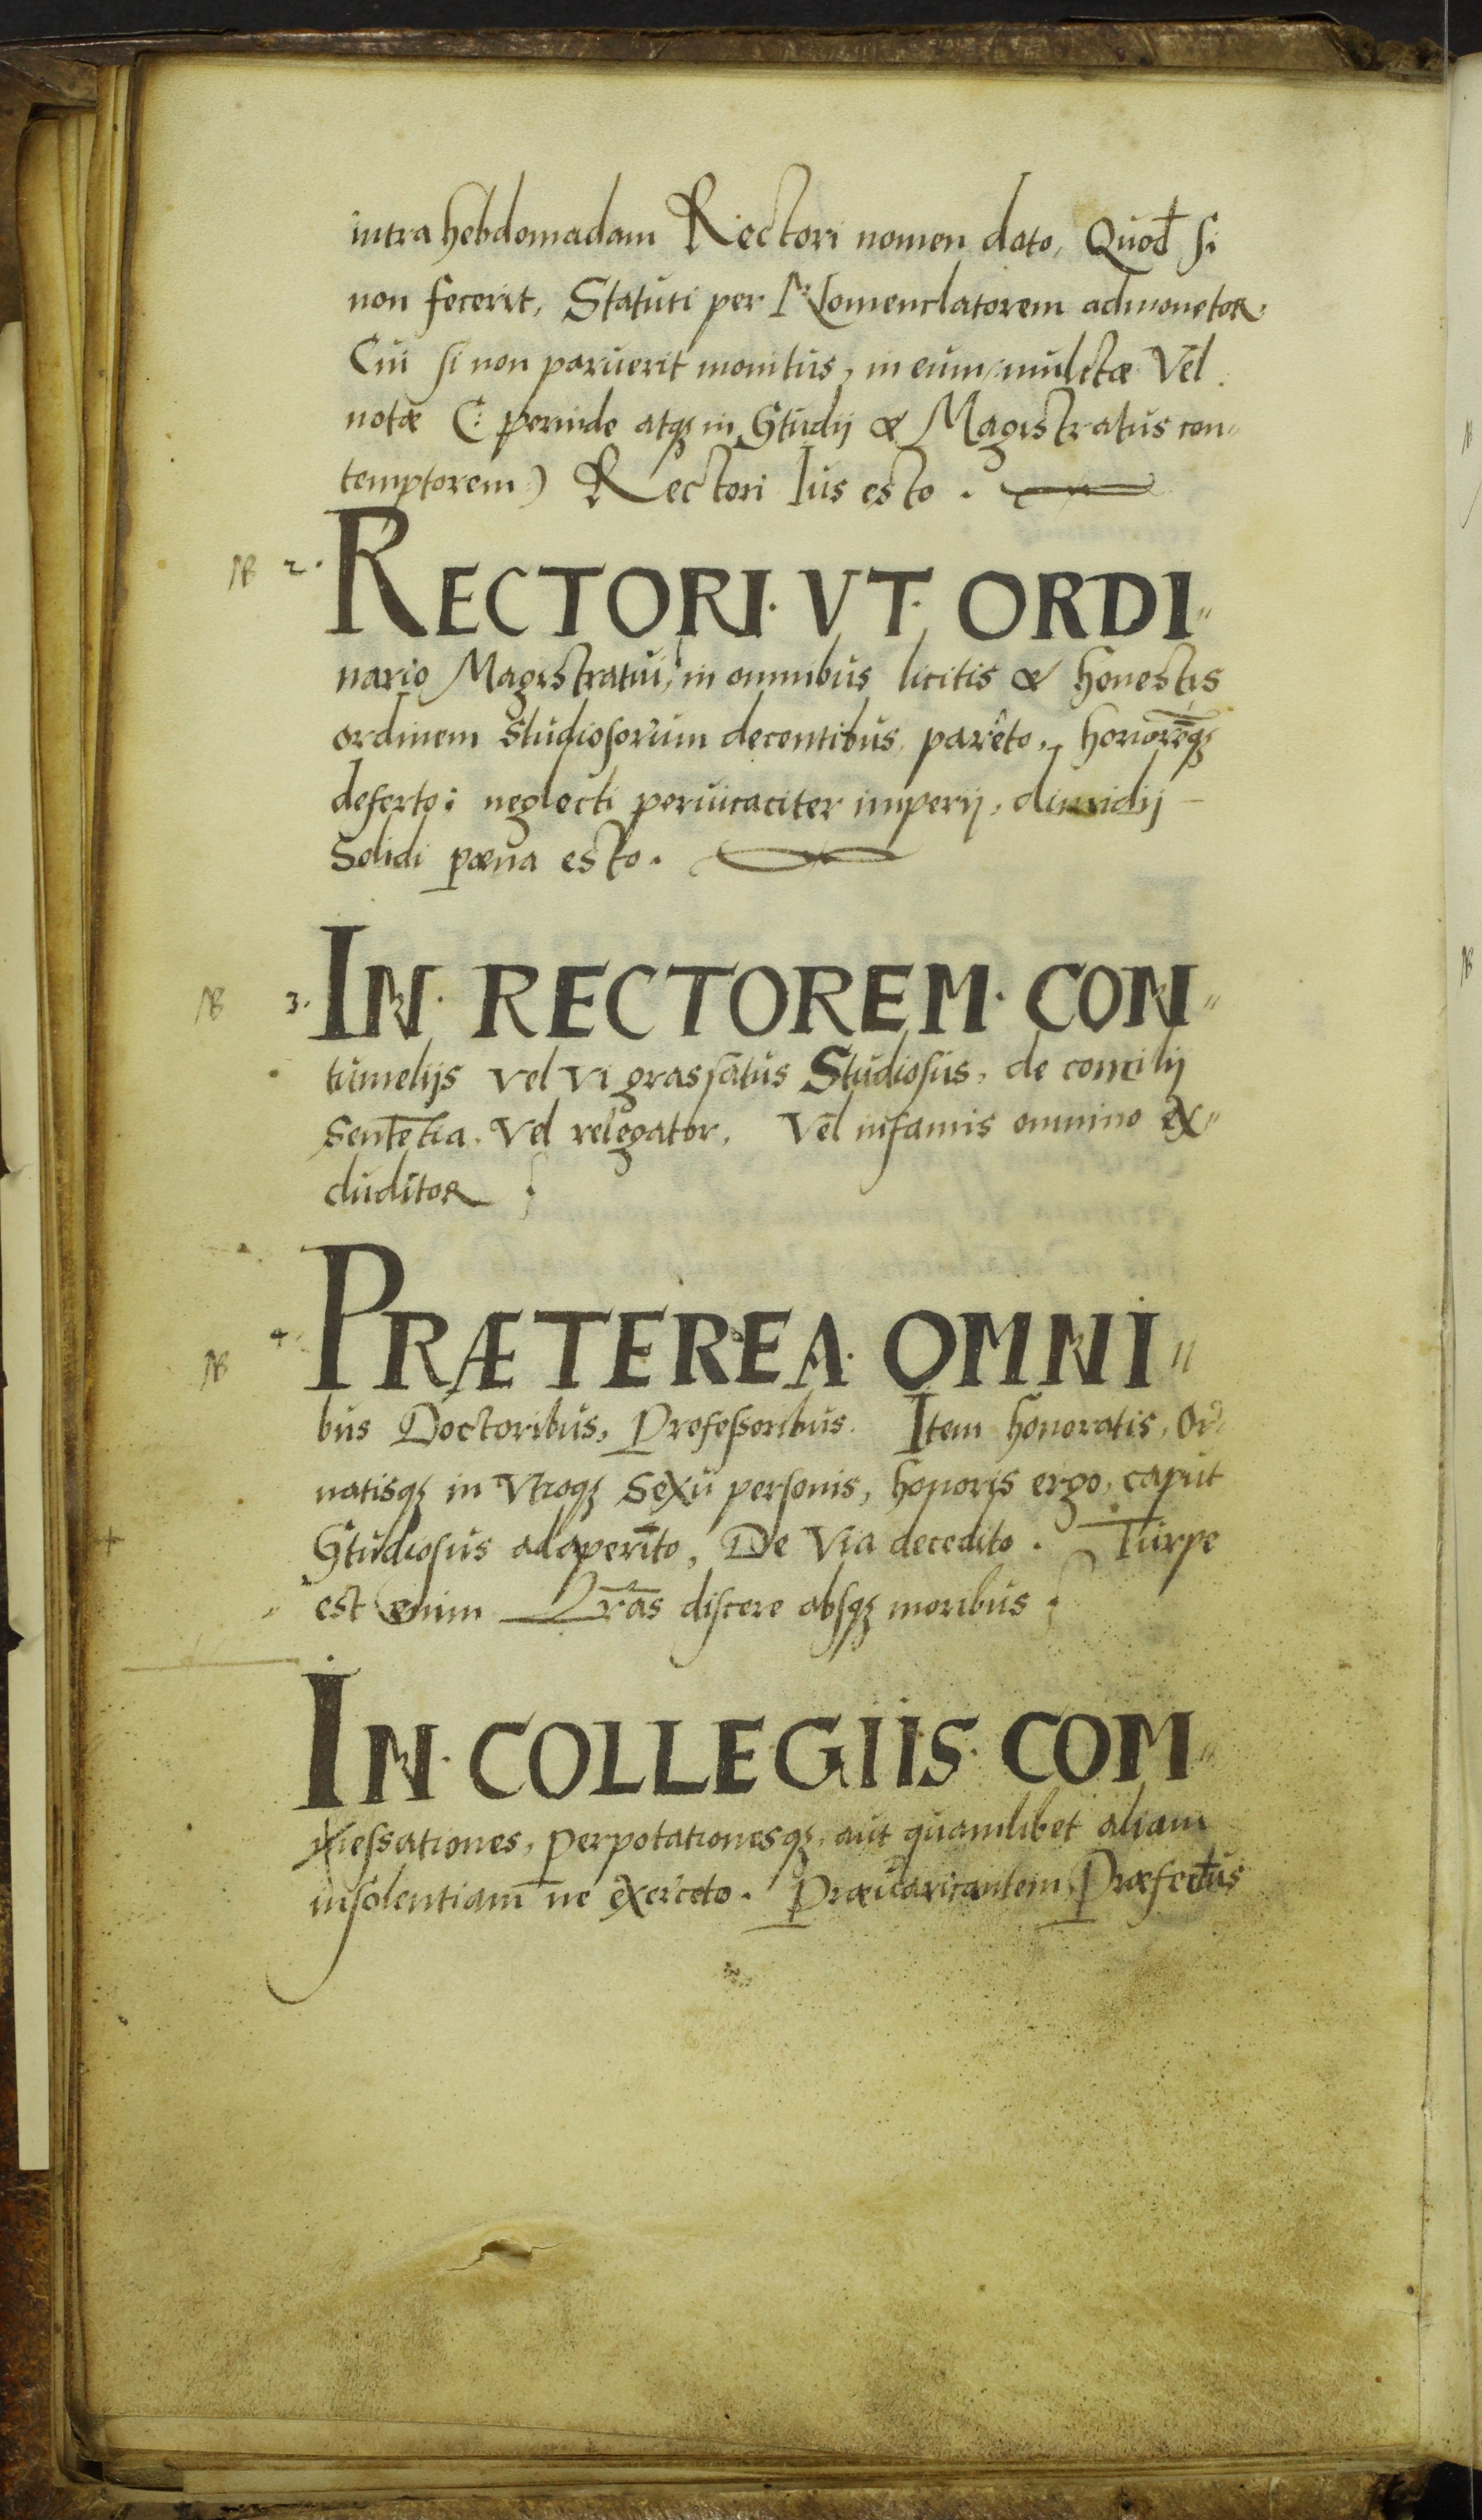 intra hebdomadam Rectori nomen dato, Quod si
non fecerit, Statuti per Nomenclatorem admonetor.
Cui si non paruerit monitus, in eum mulctæ Vel
notæ (: perinde atqꝫ in Studij & Magistratus con„
temptorem) Rectori Ius esto.
NB 2. RECTORI· VT· ORDI„
nario Magistratui, in omnibus licitis & honestis
ordinem studiosorum decentibus, parêto, honorēqꝫ
deferto: neglecti peruicaciter imperij, dimidij
Solidi pœna esto.
NB 3. IN· RECTOREM· CON„
tumelijs vel vi grassatus Studiosus, de concilij
Sentētia, Vel relegator, Vel infamis omnino ex„
cluditor
NB 4. PRÆTEREA· OMNI„
bus Doctoribus, Professoribus. Item honoratis, Or„
natisqꝫ in Vtroqꝫ Sexu personis, honoris ergo, caput
Studiosus adaperito, De Via decedito. Turpe
est enim Lr̃as discere absqꝫ moribus
IN· COLLEGIIS· COM„
messationes, perpotationesqꝫ, aut quamlibet aliam
insolentiam ne exerceto. Præuaricantem, Præfectus